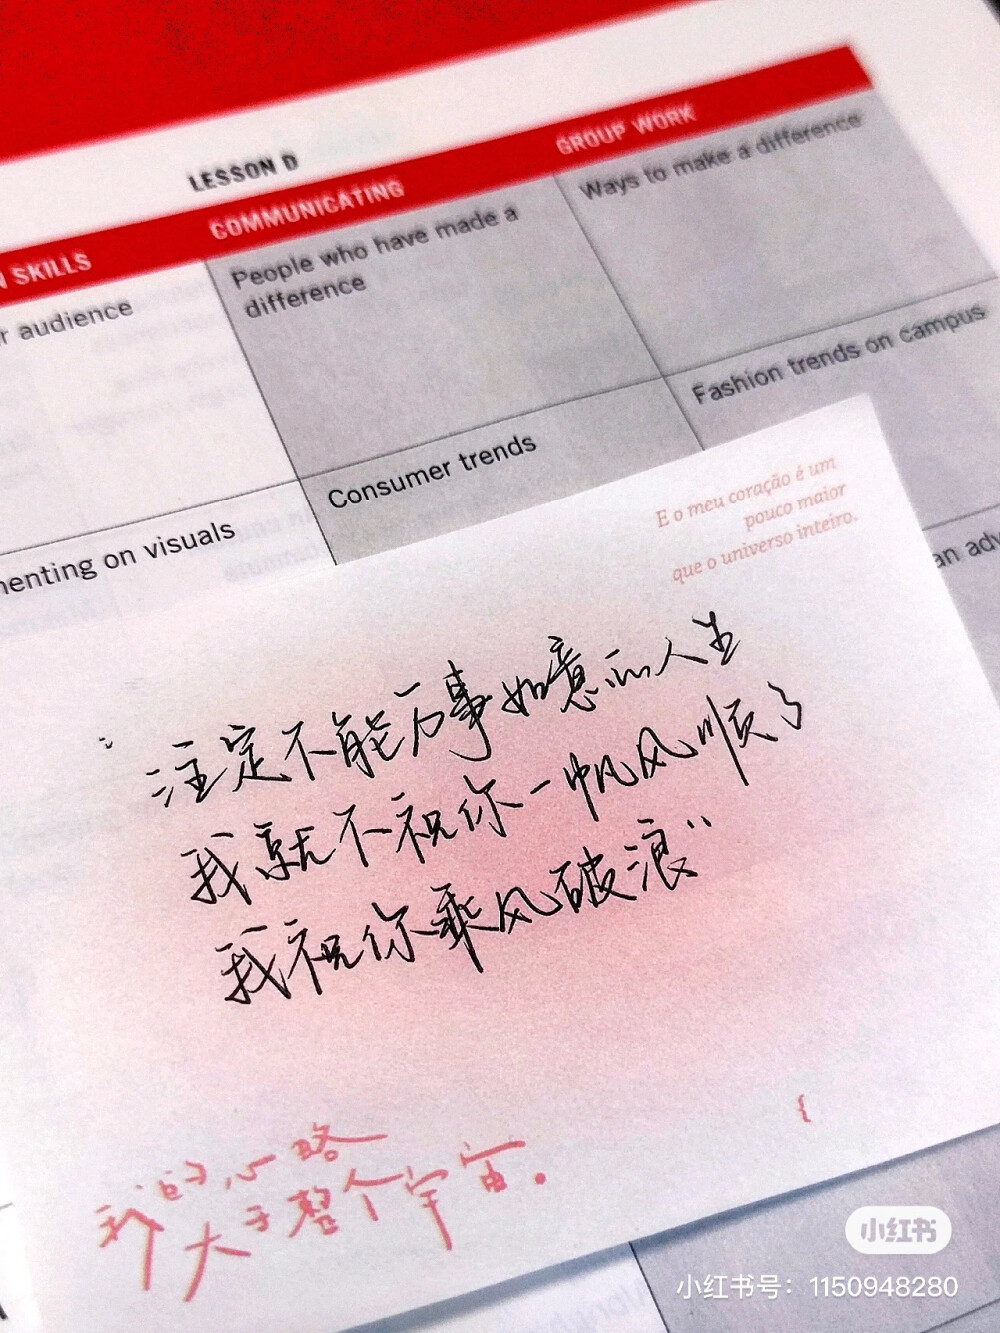 LESSON D
SKILLS
COMMUNICATING
GROUP WORK
audience
People who have made a
difference
Ways to make a difference
menting on visuals
Consumer trends
Fashion trends on campus
an adv
E o meu coração é um
pouco maior
que o universo inteiro.
“注定不能万事如意的人生
我就不祝你一帆风顺了
我祝你乘风破浪”
我的心略
大于整个宇宙。
小红书
小红书号：1150948280